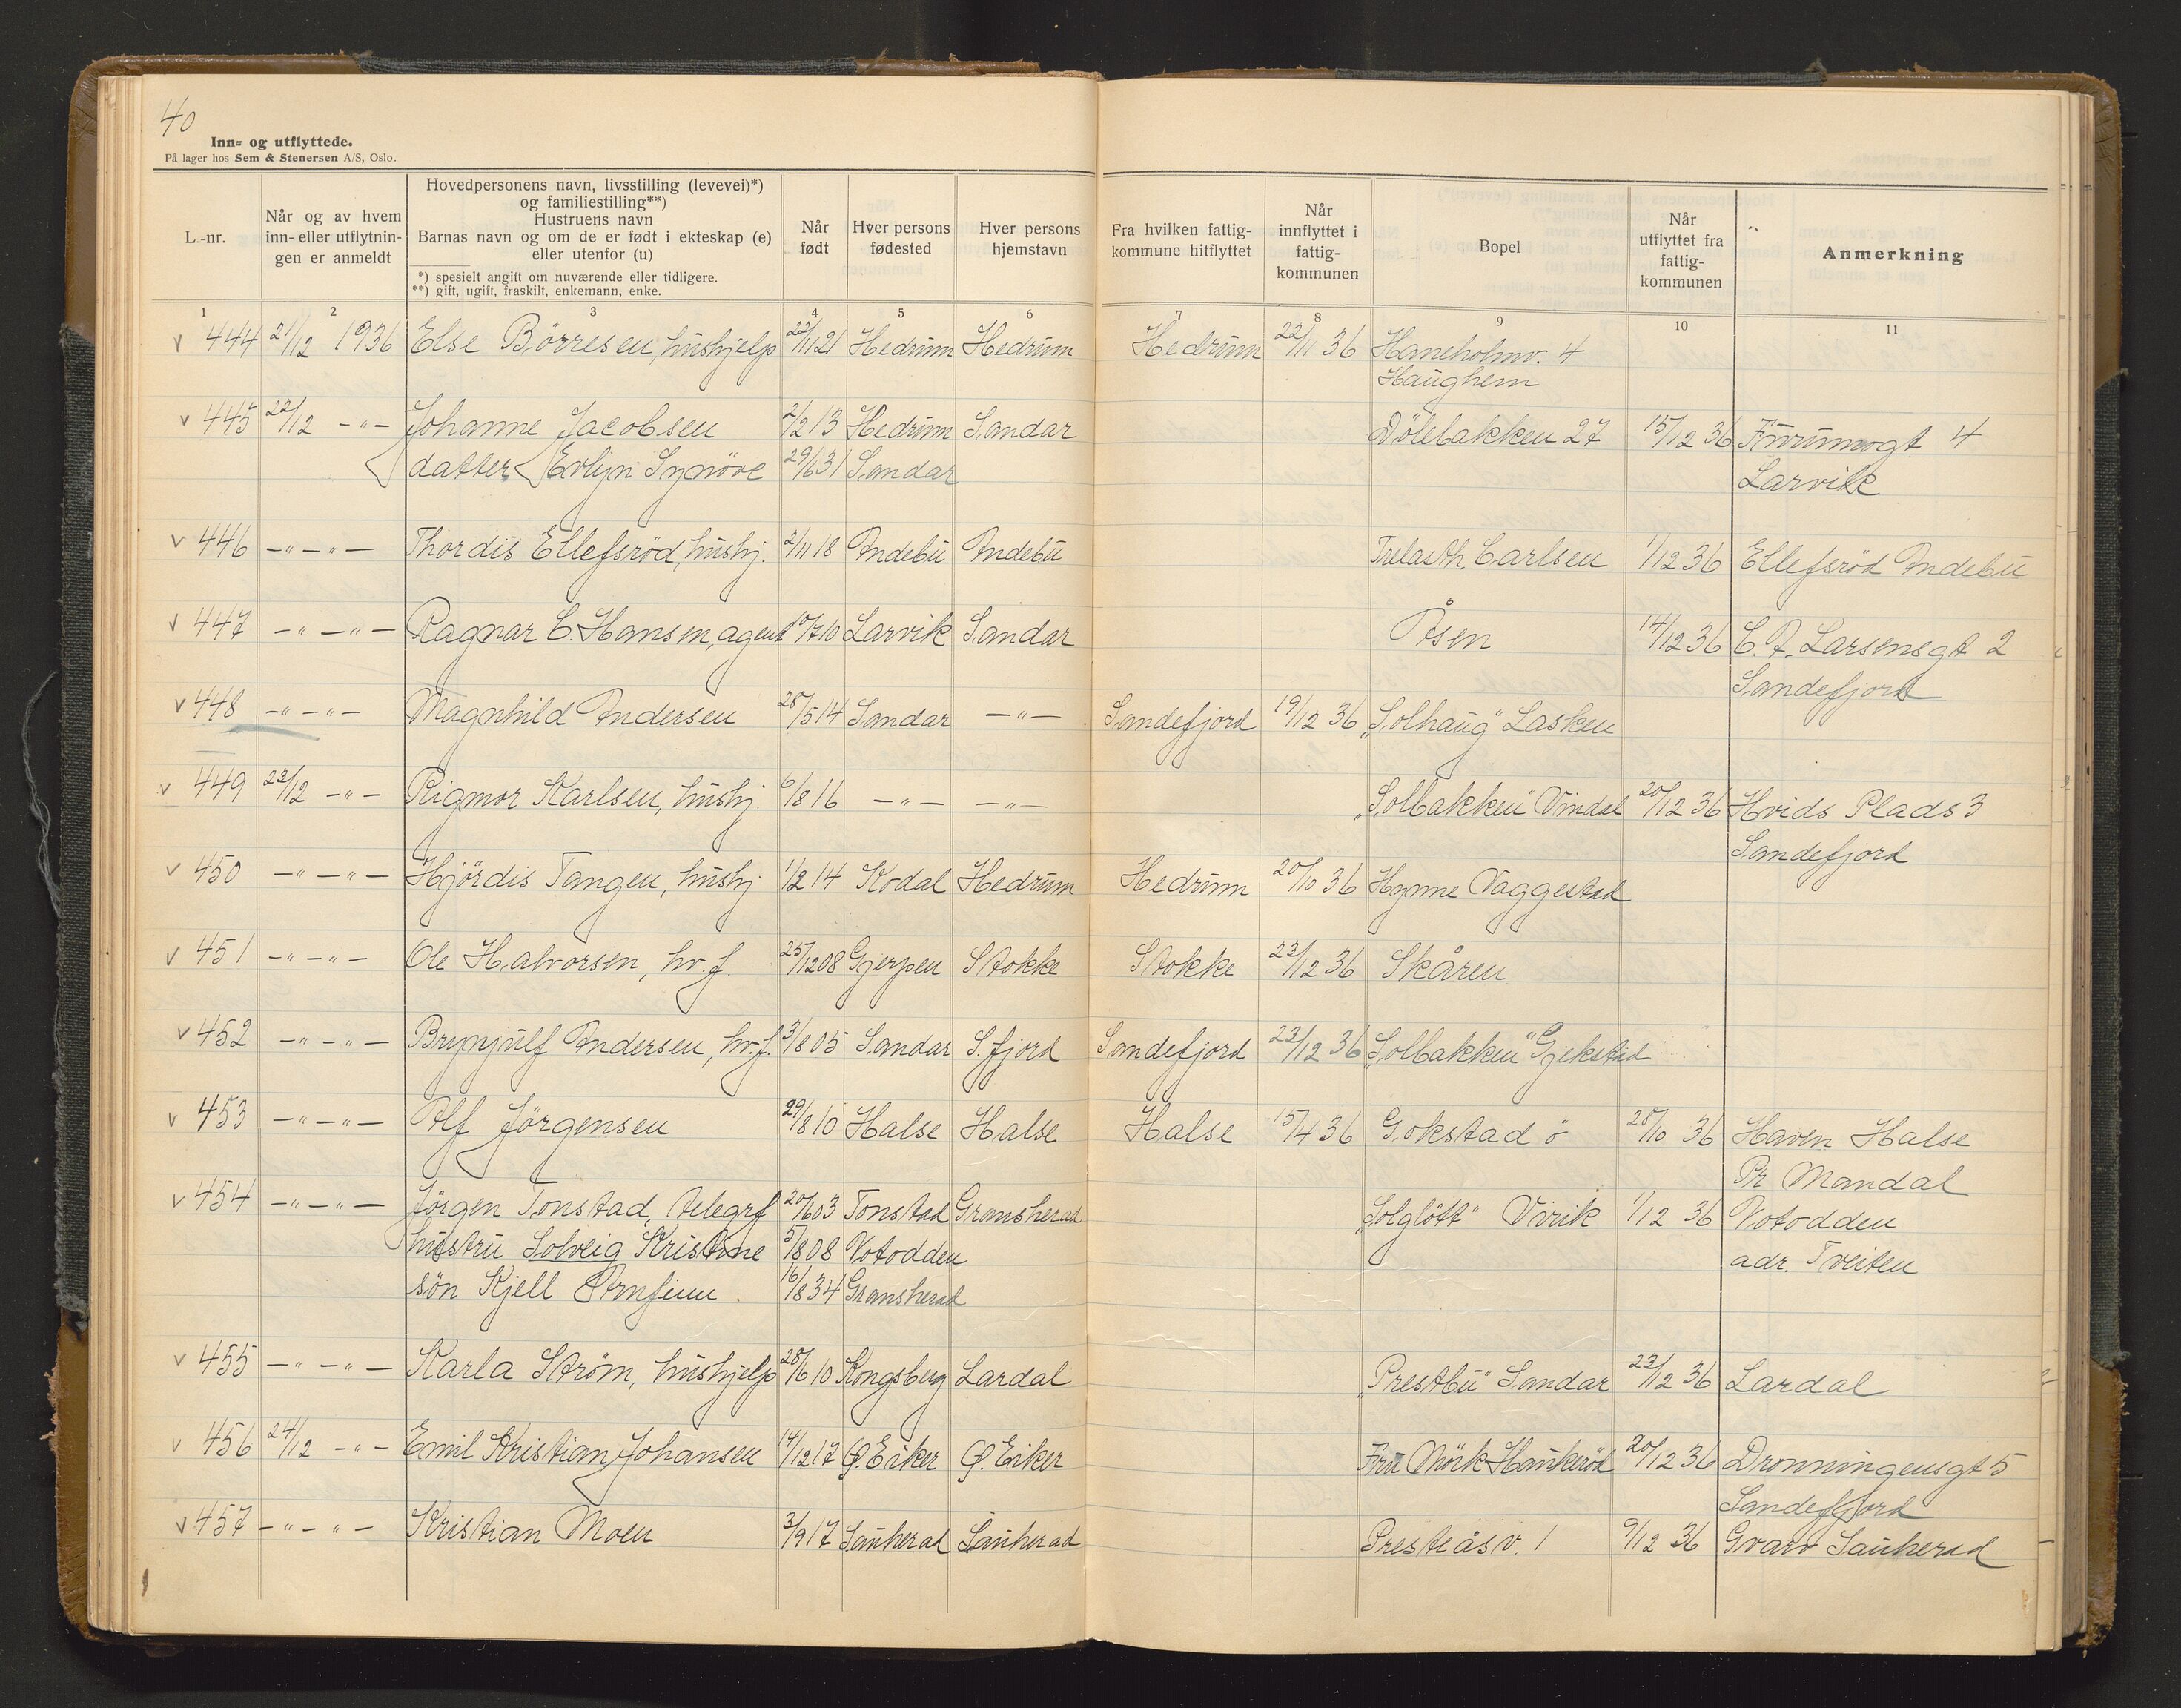 40
Inn- og utflyttede.
På lager hos Sem & Stenersen A/S, Oslo.
L.-nr.
Når og av hvem inn- eller utflytningen er anmeldt
Hovedpersonens navn, livsstilling (levevei)*)
og familiestilling**)
Hustruens navn
Barnas navn og om de er født i ekteskap (e)
eller utenfor (u)
*) spesielt angitt om nuværende eller tidligere.
**) gift, ugift, fraskilt, enkemann, enke.
Når født
Hver persons fødested
Hver persons hjemstavn
Fra hvilken fattigkommune hitflyttet
Når innflyttet i fattigkommunen
Bopel
Når utflyttet fra fattigkommunen
Anmerkning
1 2 3 4 5 6 7 8 9 10 11
v 444 21/12 1936 Else Børresen, hushjelp 22/11 21 Hedrum Hedrum Hedrum 22/11 36 Haneholmv. 4
Haughem
v 445 22/12 -"- Johanne Jacobsen 2/2 13 Hedrum Sandar Dölebakken 27 15/12 36 Furumogt 4
datter Evlyn Synöve 29/6 31 Sandar Larvik
v 446 -"-"- Thordis Ellefsröd, hushj. 2/11 18 Andebu Andebu Trelasth. Carlsen 1/12 36 Ellefsröd Andebu
v 447 -"-"- Ragnar C. Hansen, agent 10/7 10 Larvik Sandar Åsen 14/12 36 C. A. Larsensgt 2
Sandefjord
v 448 -"-"- Magnhild Andersen 28/5 14 Sandar -"- Sandefjord 19/12 36 "Solhaug" Lasken
v 449 23/12 -"- Rigmor Karlsen, hushj. 6/8 16 -"- -"- "Solbakken" Vindal 20/12 36 Hvids Plads 3
Sandefjord
v 450 -"-"- Hjördis Tangen, hushj 1/2 14 Kodal Hedrum Hedrum 20/10 36 Hynne Vaggestad
v 451 -"-"- Ole Halvorsen, hv. f. 25/12 08 Gjerpen Stokke Stokke 23/12 36 Skåren
v 452 -"-"- Brynjulf Andersen, hv. f. 3/8 05 Sandar S. fjord Sandefjord 23/12 36 "Solbakken" Gjekstad
v 453 -"-"- Alf Jörgensen 29/8 10 Halse Halse Halse 15/4 36 Gokstad ö 28/10 36 Haven Halse
Pr Mandal
v 454 -"-"- Jörgen Tonstad, telegrf 20/6 03 Tonstad Gransherad "Solglött" Virik 1/12 36 Notodden
hustru Solveig Kristine 5/8 08 Notodden adr. Tveiten
sön Kjell Arnfinn. 16/8 34 Gransherad
v 455 -"-"- Karla Ström, hushjelp 28/6 10 Kongsberg Lardal "Prestbu" Sandar 23/12 36 Lardal
v 456 24/12 -"- Emil Kristian Johansen 14/12 17 Ø. Eiker Ø. Eiker Fru Mörk Haukeröd 20/12 36 Dronningensgt 5
Sandefjord
v 457 -"-"- Kristian Moen 3/9 17 Sauherad Sauherad Presteåsv. 1 9/12 36 Gvarv Sauherad